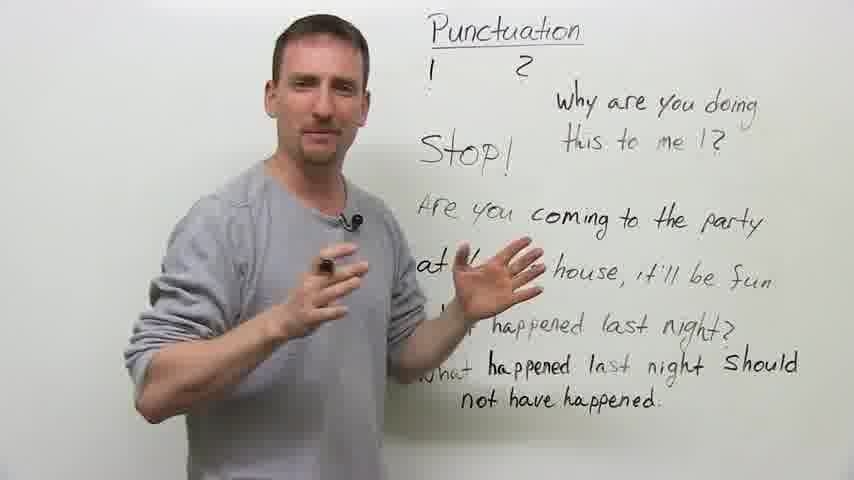 Punctuation
! ?
Why are you doing
this to me !?
Stop!
Are you coming to the party
at house, it'll be fun
happened last night?
what happened last night should
not have happened.